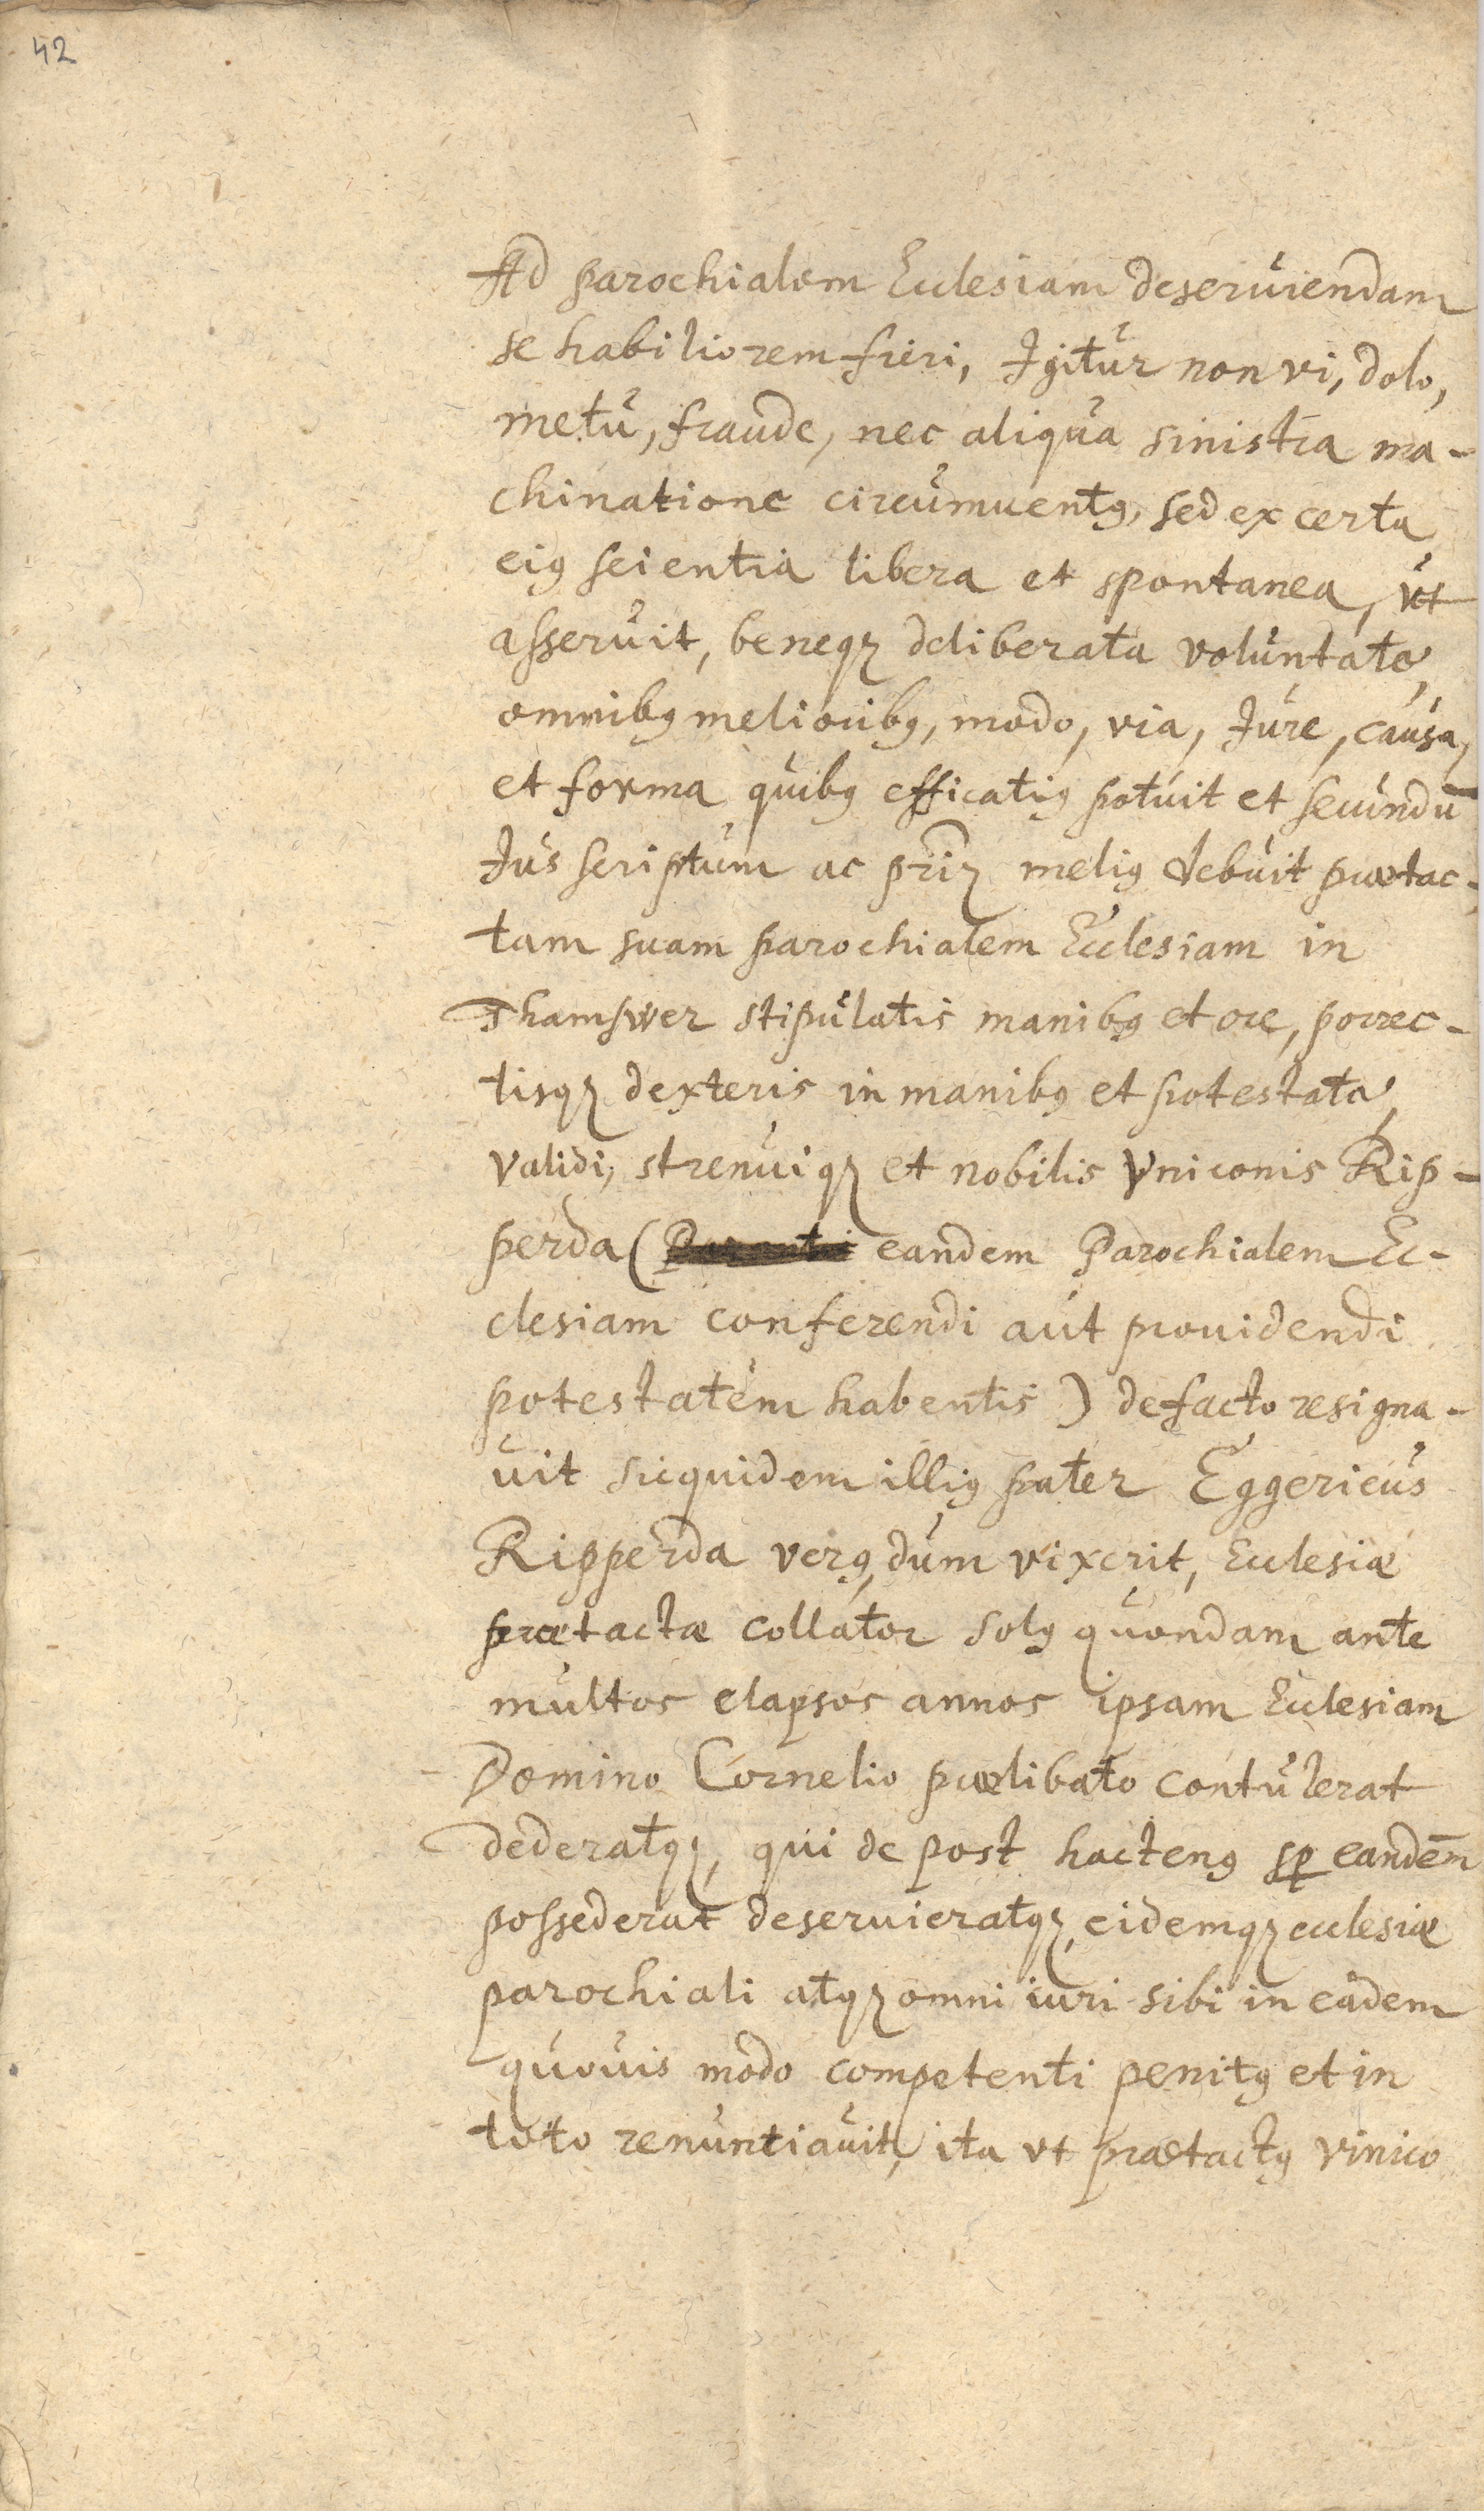 42
Ad parochialem Ecclesiam deseruiendam
se habiliorem fieri, Igitur non vi, dolo,
metu, fraude, nec aliqua sinistra ma-
chinatione circumuentꝯ, sed ex certa
eiꝯ scientia libera et spontanea, vt
asseruit, beneqꝫ deliberata voluntate,
omnibꝯ melioribꝯ, modo, via, Jure, causa,
et forma quibꝯ efficatiꝯ potuit et secundū
Jus scriptum ac meliꝯ debuit prætac-
tam suam parochialem Ecclesiam in
Thamswer stipulatis manibꝯ et ore, porrec-
tisqꝫ dexteris in manibꝯ et potestate,
validi, strenuiqꝫ et nobilis Vniconis Rip-
perda ( eandem Parochialem Ec-
clesiam conferendi aut prouidendi
potestatem habentis ) de facto resigna-
uit sicquidem illiꝯ pater Eggericus
Ripperda verꝯ, dum vixerit, Ecclesiæ
prætactæ collator solꝯ quondam ante
multos elapsos annos ipsam Ecclesiam
Domino Cornelio prælibato contulerat
dederatqꝫ, qui de post hactenꝯ sꝑ eandēm
possederat deseruieratqꝫ, eidemqꝫ ecclesiæ
parochiali atqꝫ omni iuri sibi in eadem
quouis modo competenti penitꝯ et in
toto renuntiauit, ita vt prætactꝯ vinico